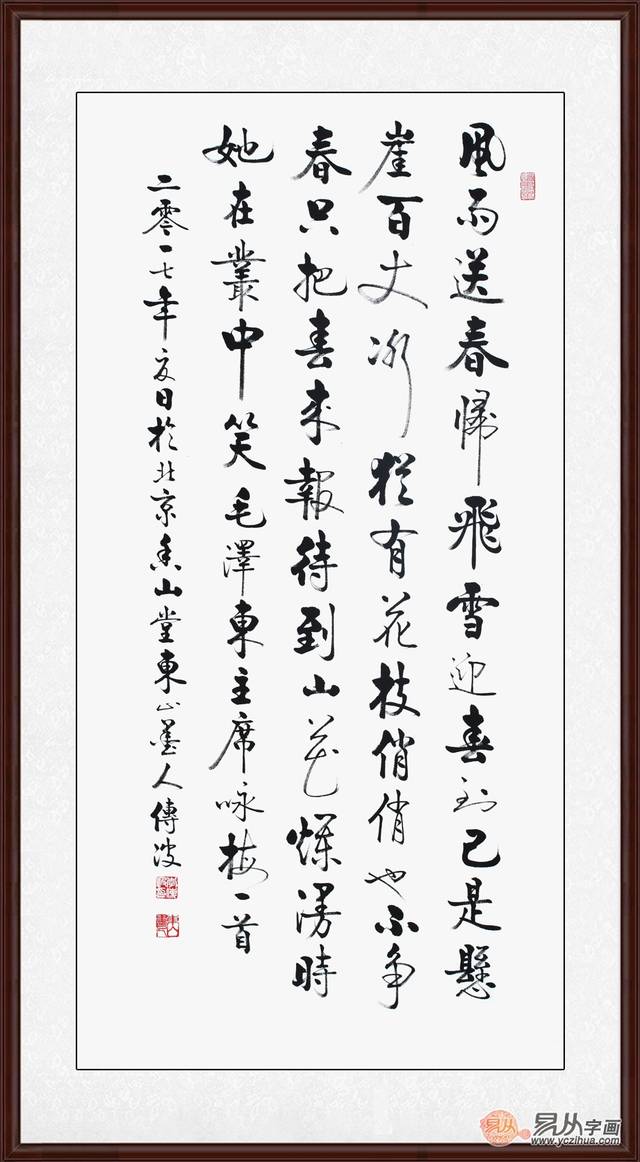 風雨送春歸飛雪迎春到已是懸
崖百丈冰猶有花枝俏俏也不争
春只把春來報待到山花爛漫時
她在叢中笑毛澤東主席咏梅一首
二零一七年夏日於北京香山堂東山墨人傳波
易从
易从字画
www.yczihua.com